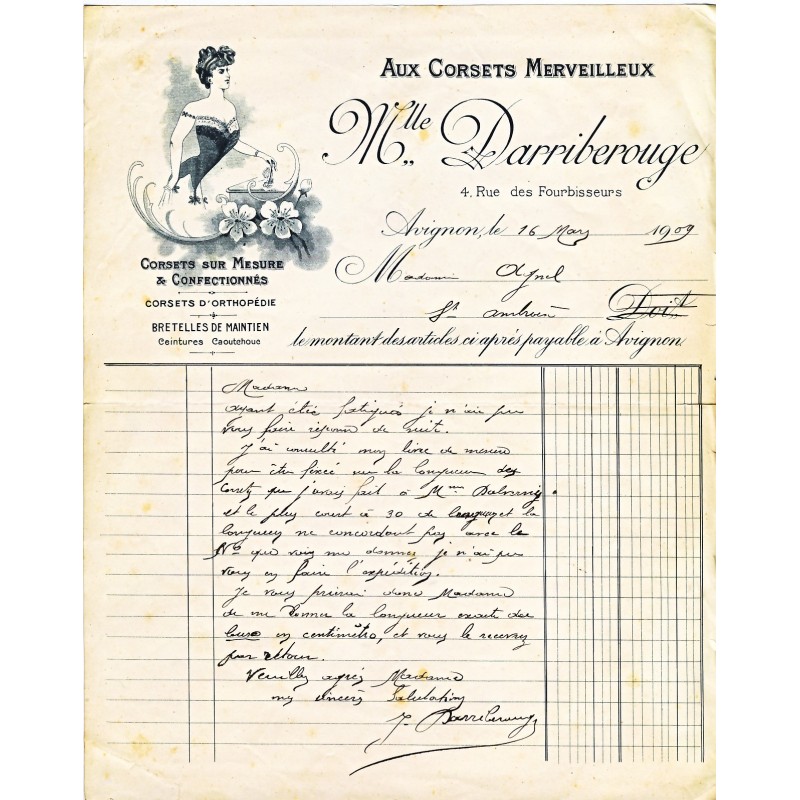 AUX CORSETS MERVEILLEUX
Mlle Darriberouge
4, Rue des Fourbisseurs
Avignon, le 16 Mars 1909
CORSETS SUR MESURE
& CONFECTIONNÉS
CORSETS D'ORTHOPÉDIE
BRETELLES DE MAINTIEN
Ceintures Caoutchouc
Madame
St Doit
le montant des articles ci après payable à Avignon
Madame
ayant étée fatiguée je n'ai pu
vous faire réponse de suite.
J'ai consulté mon livre de mesure
pour être fixée sur la longueur des
Corsets que j'avais fait à Mme
et le plus court à 30 de longueur et la
longueur ne concordant pas avec le
No que vous me donnez je n'ai pu
vous en faire l'expédition.
Je vous prierai donc Madame
de me donner la longueur exacte du
busc en centimètre, et vous le recevrez
par retour.
Veuillez agréer Madame
mes sincères Salutations
J. Darriberouge